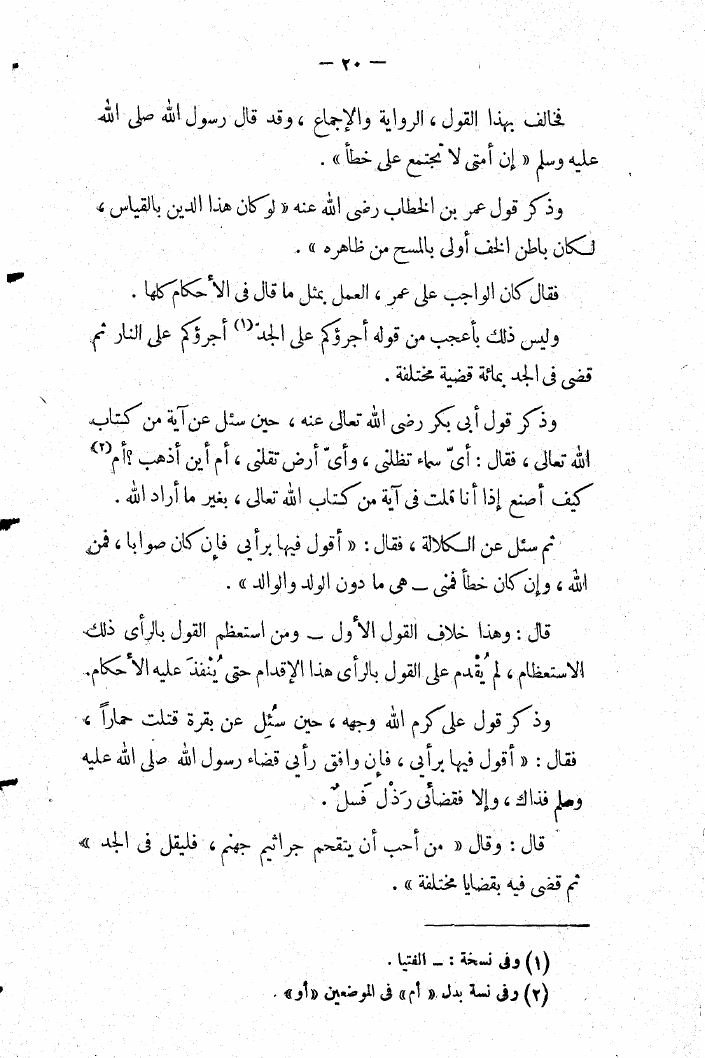 — ٢٠ —
فخالف بهذا القول ، الرواية والإجماع ، وقد قال رسول الله صلى الله
عليه وسلم « إن أمتى لا تجتمع على خطأ » .
وذكر قول عمر بن الخطاب رضى الله عنه « لو كان هذا الدين بالقياس ،
لكان باطن الخف أولى بالمسح من ظاهره » .
فقال كان الواجب على عمر ، العمل بمثل ما قال فى الأحكام كلها .
وليس ذلك بأعجب من قوله أجرؤكم على الجدّ(١) أجرؤكم على النار ثم
قضى فى الجد بمائة قضية مختلفة .
وذكر قول أبى بكر رضى الله تعالى عنه ، حين سئل عن آية من كتاب
الله تعالى ، فقال : أىّ سماء تظلنى ، وأىّ أرض تقلنى ، أم أين أذهب ؟ أم(٢)
كيف أصنع إذا أنا قلت فى آية من كتاب الله تعالى ، بغير ما أراد الله .
ثم سئل عن الكلالة ، فقال : « أقول فيها برأيى فإن كان صوابا ، فمن
الله ، وإن كان خطأ فمنى — هى ما دون الولد والوالد » .
قال : وهذا خلاف القول الأول — ومن استعظم القول بالرأى ذلك
الاستعظام ، لم يُقْدم على القول بالرأى هذا الإقدام حتى يُنْفذَ عليه الأحكام .
وذكر قول على كرم الله وجهه ، حين سُئِل عن بقرة قتلت حماراً ،
فقال : « أقول فيها برأيى ، فإن وافق رأيى قضاء رسول الله صلى الله عليه
وسلم فذاك ، وإلا فقضائى رَذْل فَسل .
قال : وقال « من أحب أن يتقحم جراثيم جهنم ، فليقل فى الجد »
ثم قضى فيه بقضايا مختلفة » .
(١) وفى نسخة : — الفتيا .
(٢) وفى نسة بدل « أم » فى الموضعين « أو » .